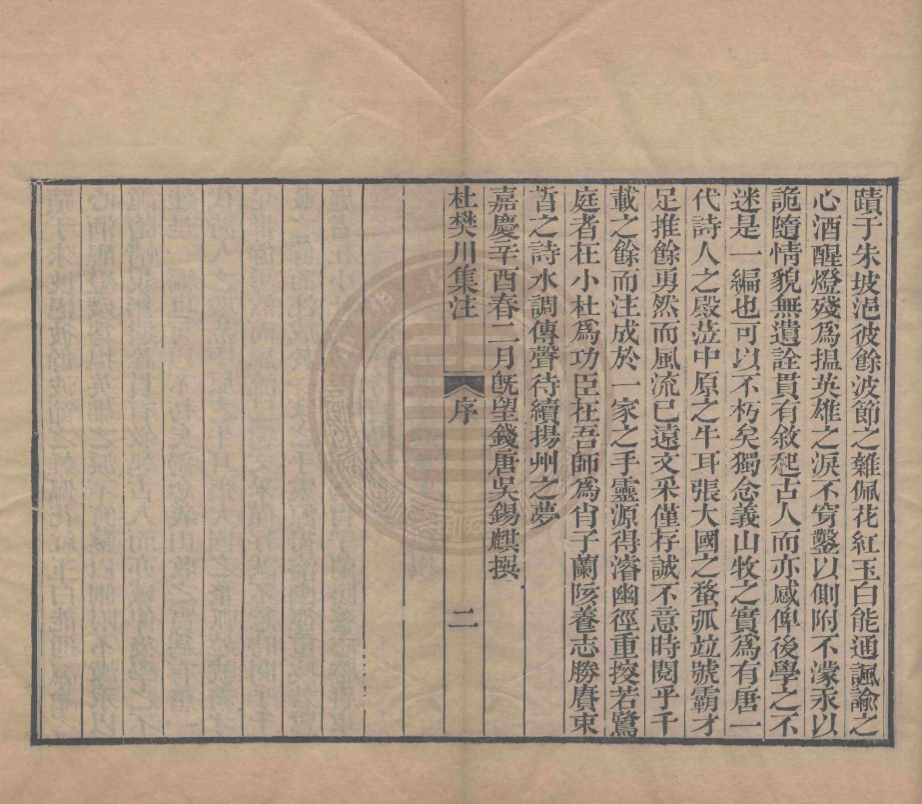 蹟于朱坡浥彼餘波節之雜佩花紅玉白能通諷諭之
心酒醒燈殘爲搵英雄之淚不穿鑿以側附不濛汞以
詭隨情貌無遺詮貫有敘起古人而亦感俾後學之不
迷是一編也可以不朽矣獨念義山牧之實爲有唐一
代詩人之殿蒞中原之牛耳張大國之蝥弧竝號霸才
足推餘勇然而風流已遠文采僅存誠不意時閱乎千
載之餘而注成於一家之手靈源得濬幽徑重挍若鷺
庭者在小杜爲功臣在吾師爲肖子蘭陔養志勝賡東
晳之詩水調傳聲待續揚州之夢
嘉慶辛酉春二月旣望錢唐吳錫麒撰
杜樊川集注 序 二